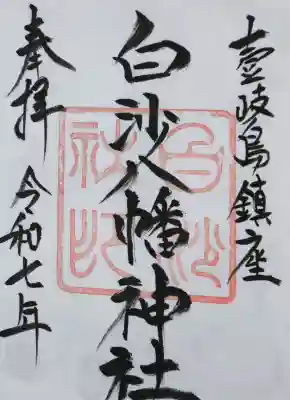 壹岐島鎮座
白沙八幡神社
奉拝 令和七年